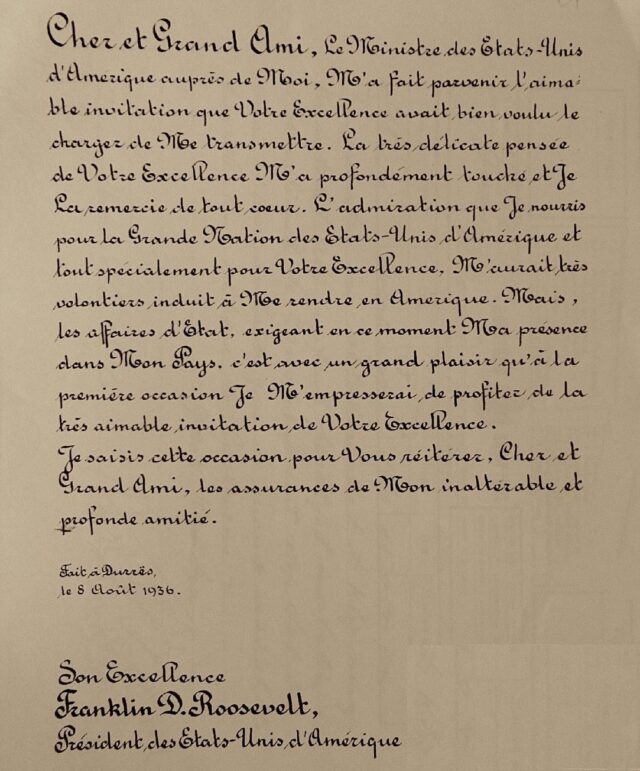 Cher et Grand Ami, Le Ministre des Etats-Unis
d'Amerique auprès de Moi, M'a fait parvenir l'aima-
ble invitation que Votre Excellence avait bien voulu le
charger de Me transmettre. La très délicate pensée
de Votre Excellence M'a profondément touché et Je
La remercie de tout coeur. L'admiration que Je nourris
pour la Grande Nation des Etats-Unis d'Amérique et
tout spécialement pour Votre Excellence, M'aurait très
volontiers induit à Me rendre en Amerique. Mais,
les affaires d'Etat, exigeant en ce moment Ma présence
dans Mon Pays, c'est avec un grand plaisir qu'à la
première occasion Je M'empresserai de profiter de la
très aimable invitation de Votre Excellence.
Je saisis cette occasion pour Vous réitérer, Cher et
Grand Ami, les assurances de Mon inaltérable et
profonde amitié.
Fait à Durrës,
le 8 Août 1936.
Son Excellence
Franklin D. Roosevelt,
Président des Etats-Unis d'Amérique